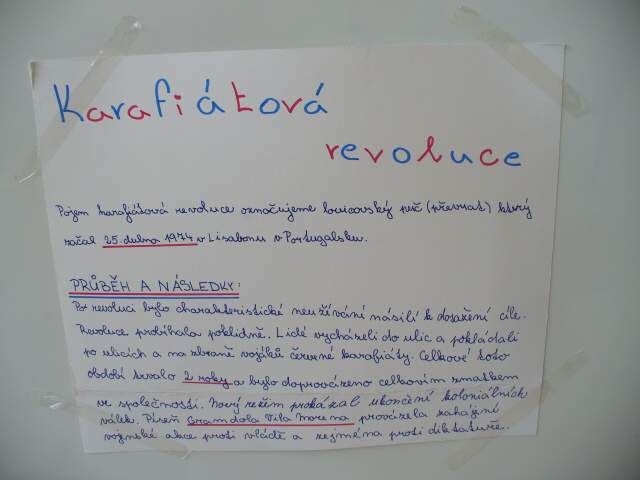 Karafiátová
revoluce
Pojem karafiátová revoluce označujeme levicovský puč (převrat) který
začal 25. dubna 1974 v Lisabonu v Portugalsku.
PRŮBĚH A NÁSLEDKY:
Po revoluci bylo charakteristické neužívání násilí k dosažení cíle.
Revoluce probíhala poklidně. Lidé vycházeli do ulic a pokládali
po ulicích a na zbraně vojáků červené karafiáty. Celkově toto
období trvalo 2 roky a bylo doprovázeno celkovým zmatkem
ve společnosti. Nový režim prokázal ukončení koloniálních
válek. Píseň Grandola Vila Morena provázela zahájení
vojenské akce proti vládě a zejména proti diktatuře.